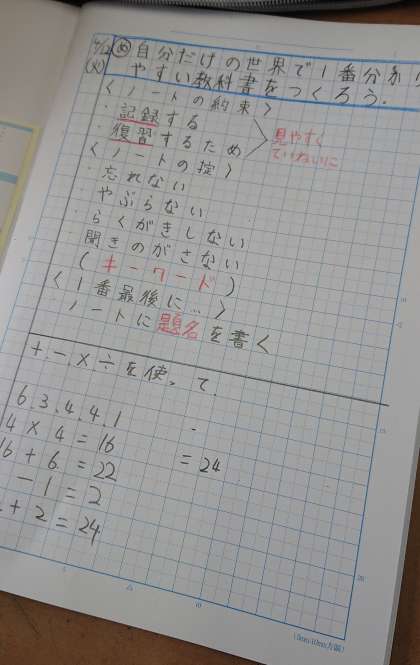 め 自分だけの世界で1番分かり
やすい教科書をつくろう.
(火)
<ノートの約束>
・記録する
・復習するため
見やすく
ていねいに
<ノートの掟>
・忘れない
・やぶらない
・らくがきしない
聞きのがさない
(キーワード)
<1番最後に…>
ノートに題名を書く
+.-.×.÷を使って.
6.3.4.4.1
4×4=16
16+6=22
-1=2
+2=24
=24